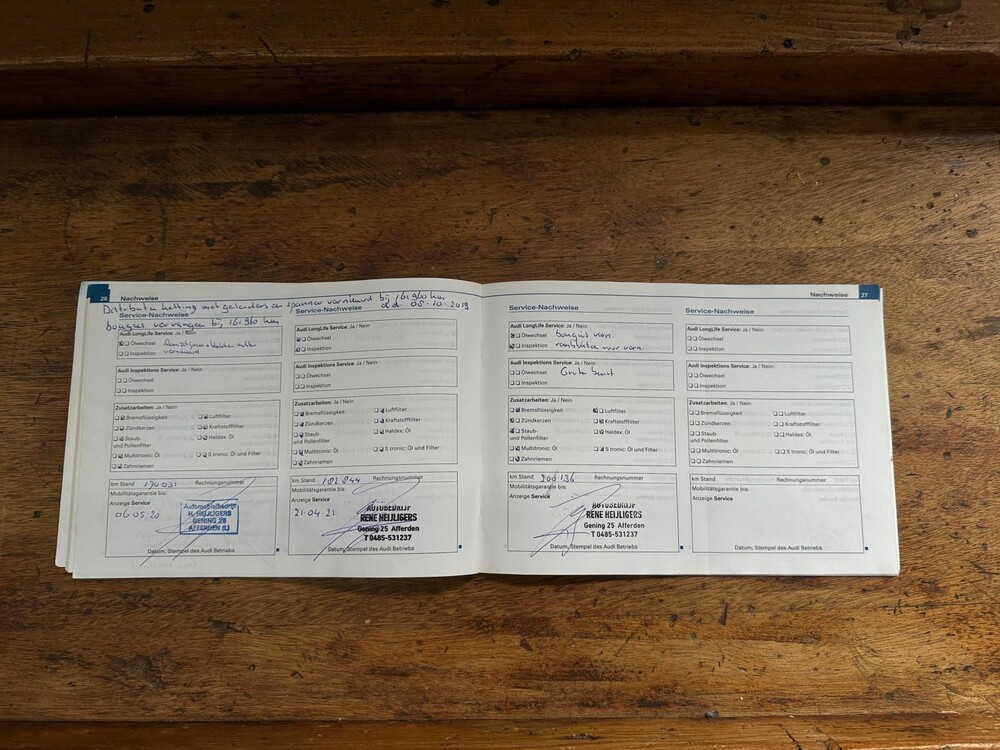 26 Nachweise
Distributie ketting met geleiders en spanner vernieuwd bij 161.960 km
d.d. 05-10-2019
Service-Nachweise
bougies vervangen bij 161.960 km
Audi LongLife Service: Ja / Nein
Ölwechsel
Inspektion
vernieuwd
Audi Inspektions Service: Ja / Nein
Ölwechsel
Inspektion
Zusatzarbeiten: Ja / Nein
Bremsflüssigkeit Luftfilter
Zündkerzen Kraftstofffilter
Staub- Haldex: Öl
und Pollenfilter
Multitronic: Öl S tronic: Öl und Filter
Zahnriemen
km Stand 170.031 Rechnungsnummer
Mobilitätsgarantie bis:
Anzeige Service
06-05-20
Automobielbedrijf
H. HEIJLIGERS
GENING 25
AFFERDEN (L)
Datum, Stempel des Audi Betriebs
Service-Nachweise
Audi LongLife Service: Ja / Nein
Ölwechsel
Inspektion
Audi Inspektions Service: Ja / Nein
Ölwechsel
Inspektion
Zusatzarbeiten: Ja / Nein
Bremsflüssigkeit Luftfilter
Zündkerzen Kraftstofffilter
Staub- Haldex: Öl
und Pollenfilter
Multitronic: Öl S tronic: Öl und Filter
Zahnriemen
km Stand 182.844 Rechnungsnummer
Mobilitätsgarantie bis:
Anzeige Service
21-04-21
AUTOBEDRIJF
RENE HEIJLIGERS
Gening 25 Afferden
T 0485-531237
Datum, Stempel des Audi Betriebs
Nachweise 27
Service-Nachweise
Audi LongLife Service: Ja / Nein
Ölwechsel bougies vern.
Inspektion voor vern.
Audi Inspektions Service: Ja / Nein
Ölwechsel Grote beurt
Inspektion
Zusatzarbeiten: Ja / Nein
Bremsflüssigkeit Luftfilter
Zündkerzen Kraftstofffilter
Staub- Haldex: Öl
und Pollenfilter
Multitronic: Öl S tronic: Öl und Filter
Zahnriemen
km Stand 200.136 Rechnungsnummer
Mobilitätsgarantie bis:
Anzeige Service
AUTOBEDRIJF
RENE HEIJLIGERS
Gening 25 Afferden
T 0485-531237
Datum, Stempel des Audi Betriebs
Service-Nachweise
Audi LongLife Service: Ja / Nein
Ölwechsel
Inspektion
Audi Inspektions Service: Ja / Nein
Ölwechsel
Inspektion
Zusatzarbeiten: Ja / Nein
Bremsflüssigkeit Luftfilter
Zündkerzen Kraftstofffilter
Staub- Haldex: Öl
und Pollenfilter
Multitronic: Öl S tronic: Öl und Filter
Zahnriemen
km Stand Rechnungsnummer
Mobilitätsgarantie bis:
Anzeige Service
Datum, Stempel des Audi Betriebs